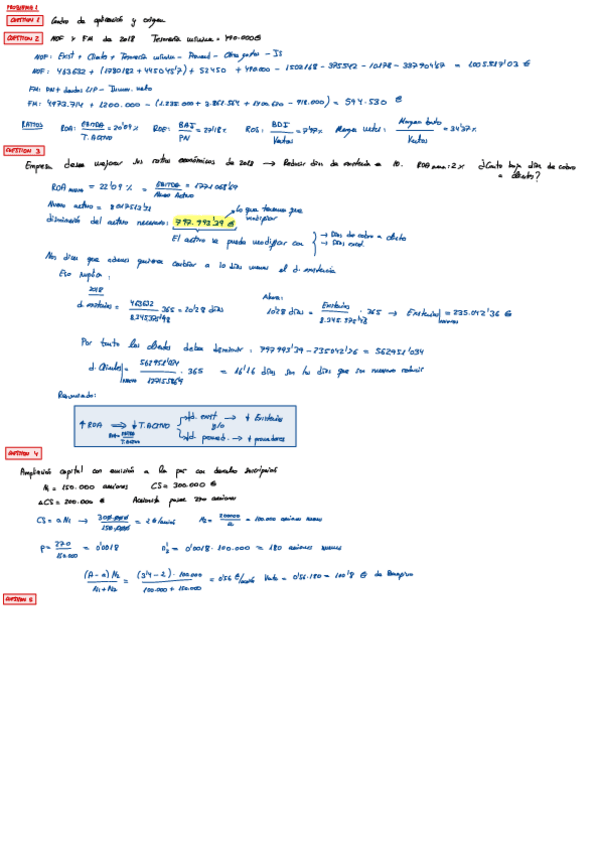 PROBLEMA 1
CUESTION 1 Cuadro de aplicación y origen
CUESTION 2 NOF y FM de 2018 Tesorería mínima = 490.000€
NOF: Exist + Clientes + Tesorería mínima - Proveed - Otros gastos - IS
NOF: 463632 + (1780182 + 445045'7) + 52450 + 490.000 - 1502168 - 375542 - 10178 - 337904'67 = 1005.517'03 €
FM: PN + deudas L/P - Inmov. neto
FM: 4973.714 + 1200.000 - (1.235.000 + 3.861.564 + 1400.620 - 918.000) = 594.530 €
RATIOS ROA: EBITDA / T. ACTIVO = 20'09 % ROE: BAI / PN = 27'18 % ROS: BDI / Ventas = 7'97 % Margen ventas: Margen bruto / Ventas = 34'37 %
CUESTION 3
Empresa desea mejorar los ratios económicos de 2018 → Reducir días de existencia a 10. ROA aum: 2 % ¿Cuánto baja días de cobro a cliente?
ROA nuevo = 22'09 % = EBITDA = 1771068'69 / Nuevo Activo
Nuevo activo = 8017513'21
disminución del activo necesario: 797.993'39 € → Lo que tenemos que modificar
El activo se puede modificar con → Días de cobro a cliente
→ Días exist.
Nos dicen que además quieren cambiar a 10 días menos el d. existencia
Eso implica:
2018
d. existencias = 463632 / 8.245.375'98 · 365 = 20'28 días
Ahora:
10'28 días = Existencias / 8.345.375'98 · 365 → Existencias nuevas = 235.042'36 €
Por tanto los clientes deben disminuir: 797993'39 - 235042'36 = 562951'034
d. Clientes nuevo = 562951'034 / 12715586'9 · 365 = 16'16 días son los días que son necesarios reducir
Resumiendo:
↑ ROA ⟹ ↓ T. ACTIVO ↓d. exist → ↓ Existencias
ROA = EBITDA / T. ACTIVO y/o
↓d. proveed. → ↓ proveedores
CUESTION 4
Ampliación capital con emisión a la par con derechos suscripción
N1 = 150.000 acciones CS = 300.000 €
ΔCS = 200.000 € Accionista posee 270 acciones
CS = a N1 → 300.000 / 150.000 = 2 €/acción N2 = 200000 / 2 = 100.000 acciones nuevas
p = 270 / 150.000 = 0'0018 n'2 = 0'0018 · 100.000 = 180 acciones nuevas
(A - a) N2 / N1 + N2 = (3'4 - 2) · 100.000 / 100.000 + 150.000 = 0'56 €/acción Venta = 0'56 · 180 = 100'8 €
CUESTION 5